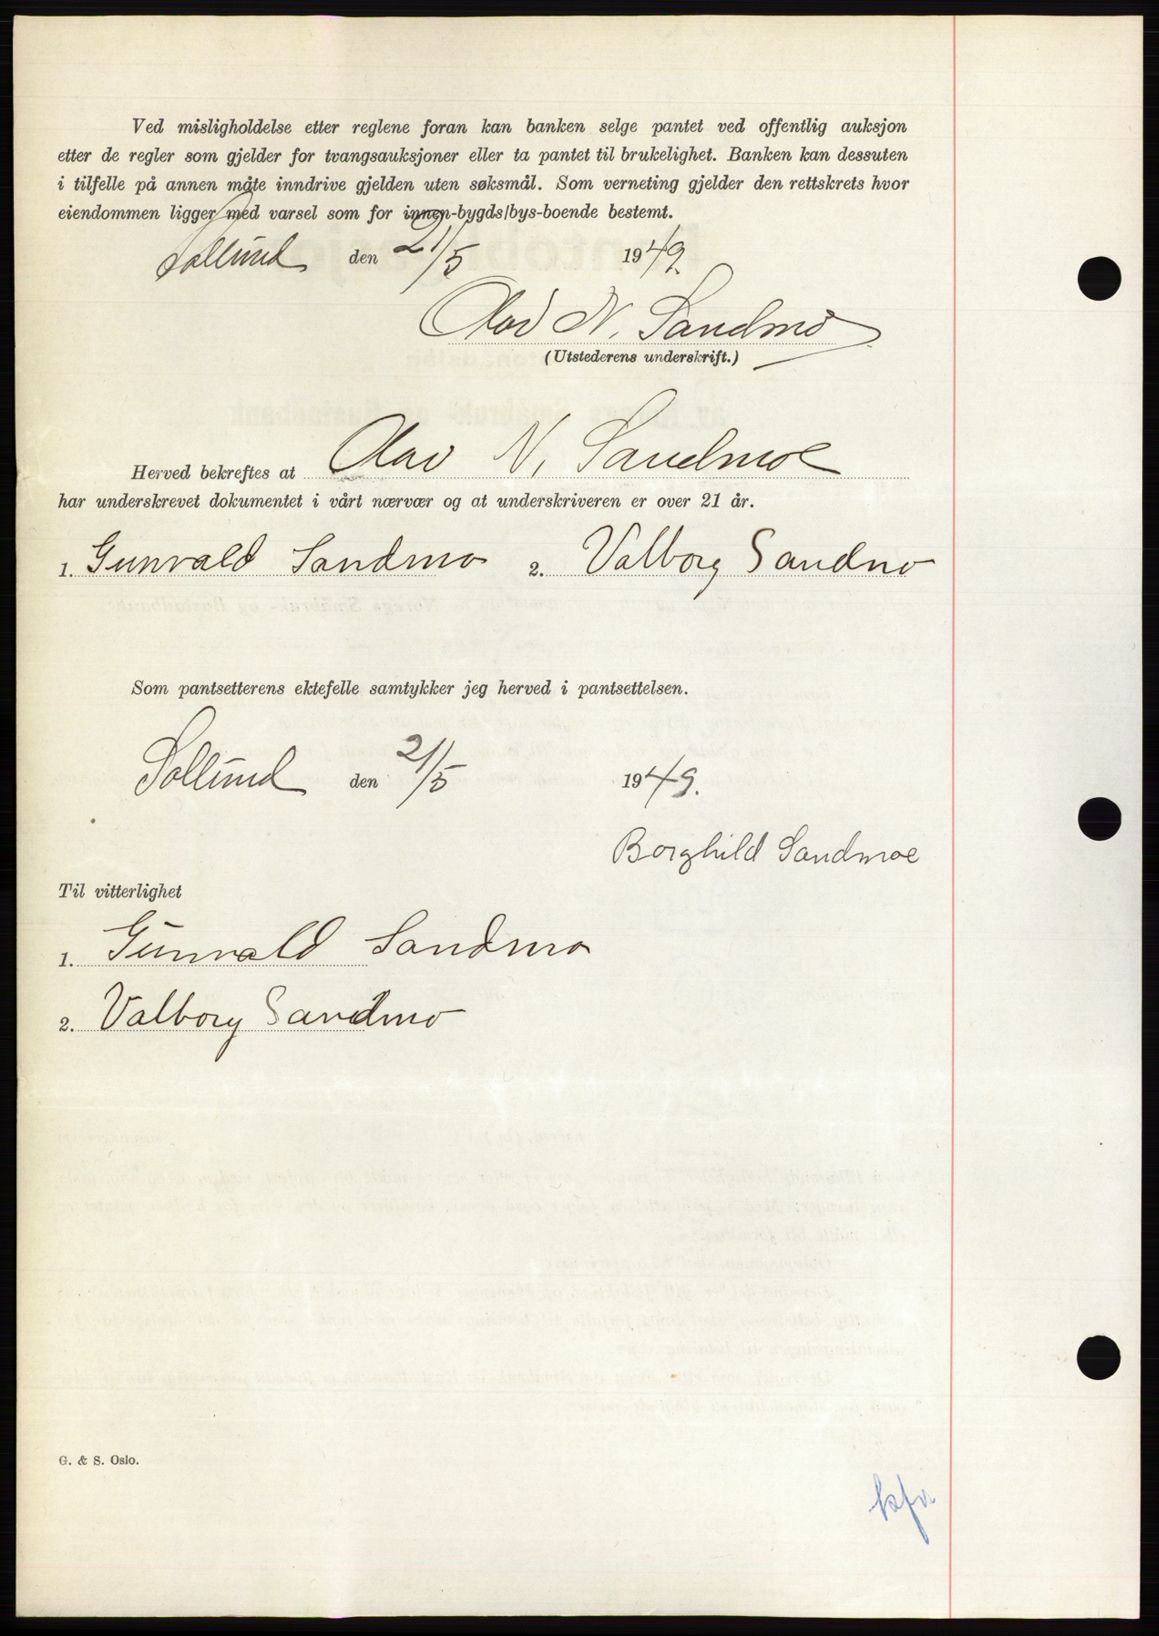 Ved misligholdelse etter reglene foran kan banken selge pantet ved offentlig auksjon
etter de regler som gjelder for tvangsauksjoner eller ta pantet til brukelighet. Banken kan dessuten
i tilfelle på annen måte inndrive gjelden uten søksmål. Som verneting gjelder den rettskrets hvor
eiendommen ligger med varsel som for innen-bygds/bys-boende bestemt.
Sollund den 21/5 1949.
Olav N. Sandmo
(Utstederens underskrift.)
Herved bekreftes at Olav N. Sandmoe
har underskrevet dokumentet i vårt nærvær og at underskriveren er over 21 år.
1. Gunvald Sandmo 2. Valborg Sandmo
Som pantsetterens ektefelle samtykker jeg herved i pantsettelsen.
Sollund den 21/5 1949.
Borghild Sandmoe
Til vitterlighet
1. Gunvald Sandmo
2. Valborg Sandmo
G. & S. Oslo.